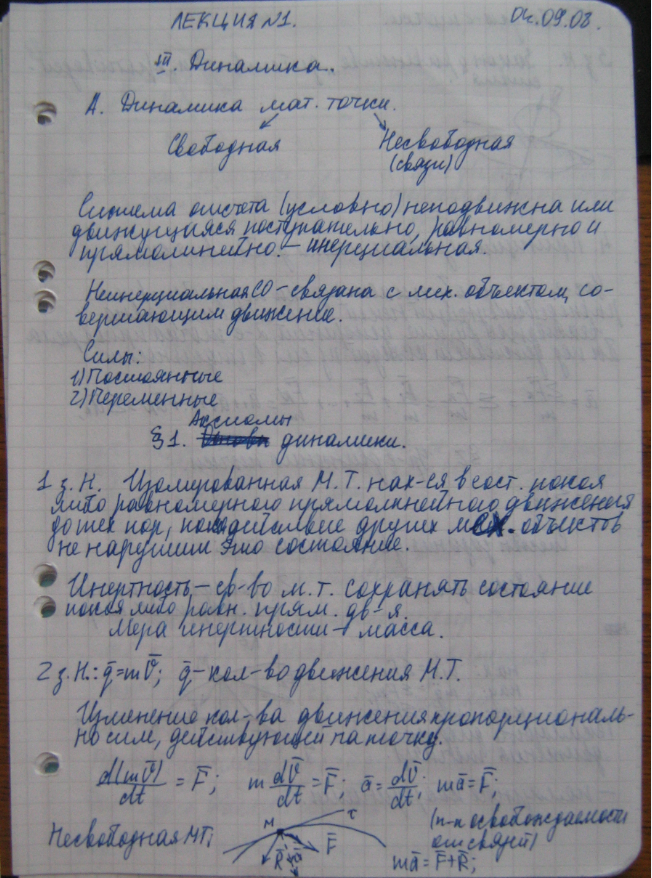 ЛЕКЦИЯ №1. 04.09.08.
III. Динамика.
А. Динамика мат. точки.
Свободная Несвободная
(связи)
Система отсчета (условно) неподвижна или
движущаяся поступательно, равномерно и
прямолинейно. – инерциальная.
Неинерциальная СО – связана с мех. объектом, со-
вершающим движение.
Силы:
1) Постоянные
2) Переменные
Аксиомы
§1. динамики.
1 з.Н. Изолированная М.Т. нах-ся в сост. покоя
либо равномерного прямолинейного движения
до тех пор, пока действие других мех. объектов
не нарушит это состояние.
Инертность – св-во м.т. сохранять состояние
покоя либо равн. прям. дв-я.
Мера инертности – масса.
2 з.Н.: q̄=mV̄; q̄ – кол-во движения М.Т.
Изменение кол-ва движения пропорциональ-
но сил, действующей на точку.
d(mV̄)/dt = F̄; m dV̄/dt = F̄; ā = dV̄/dt; mā = F̄;
Несвободная МТ: M τ R̄ ā F̄ (п-п освобождаемости
от связей)
mā = F̄+R̄;